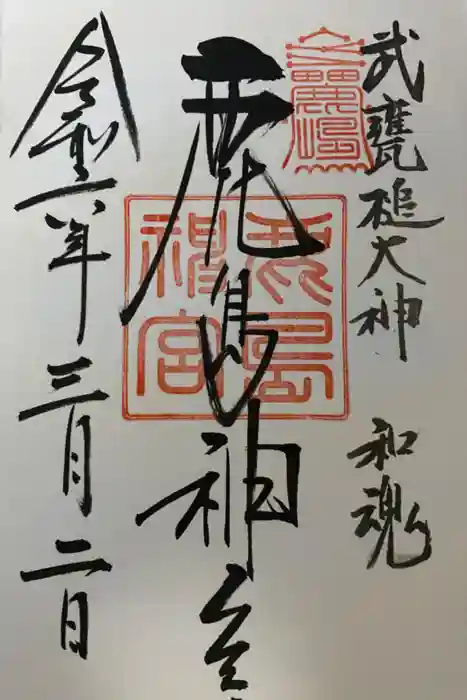 武甕槌大神 和魂
鹿島神宮
鹿島神宮
令和六年三月二日